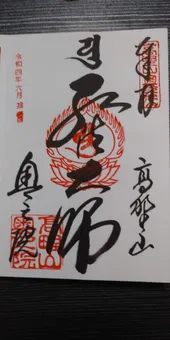 奉拝
高野山
弘法大師
令和四年六月拝
奥之院